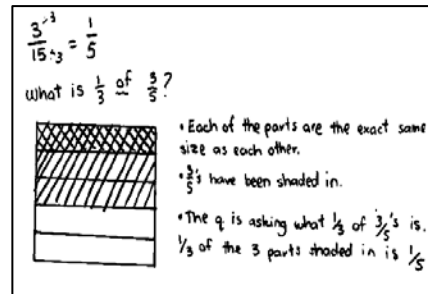 3÷3 / 15÷3 = 1/5
What is 1/3 of 3/5?
• Each of the parts are the exact same
size as each other.
• 3/5's have been shaded in.
• The q is asking what 1/3 of 3/5's is.
1/3 of the 3 parts shaded in is 1/5